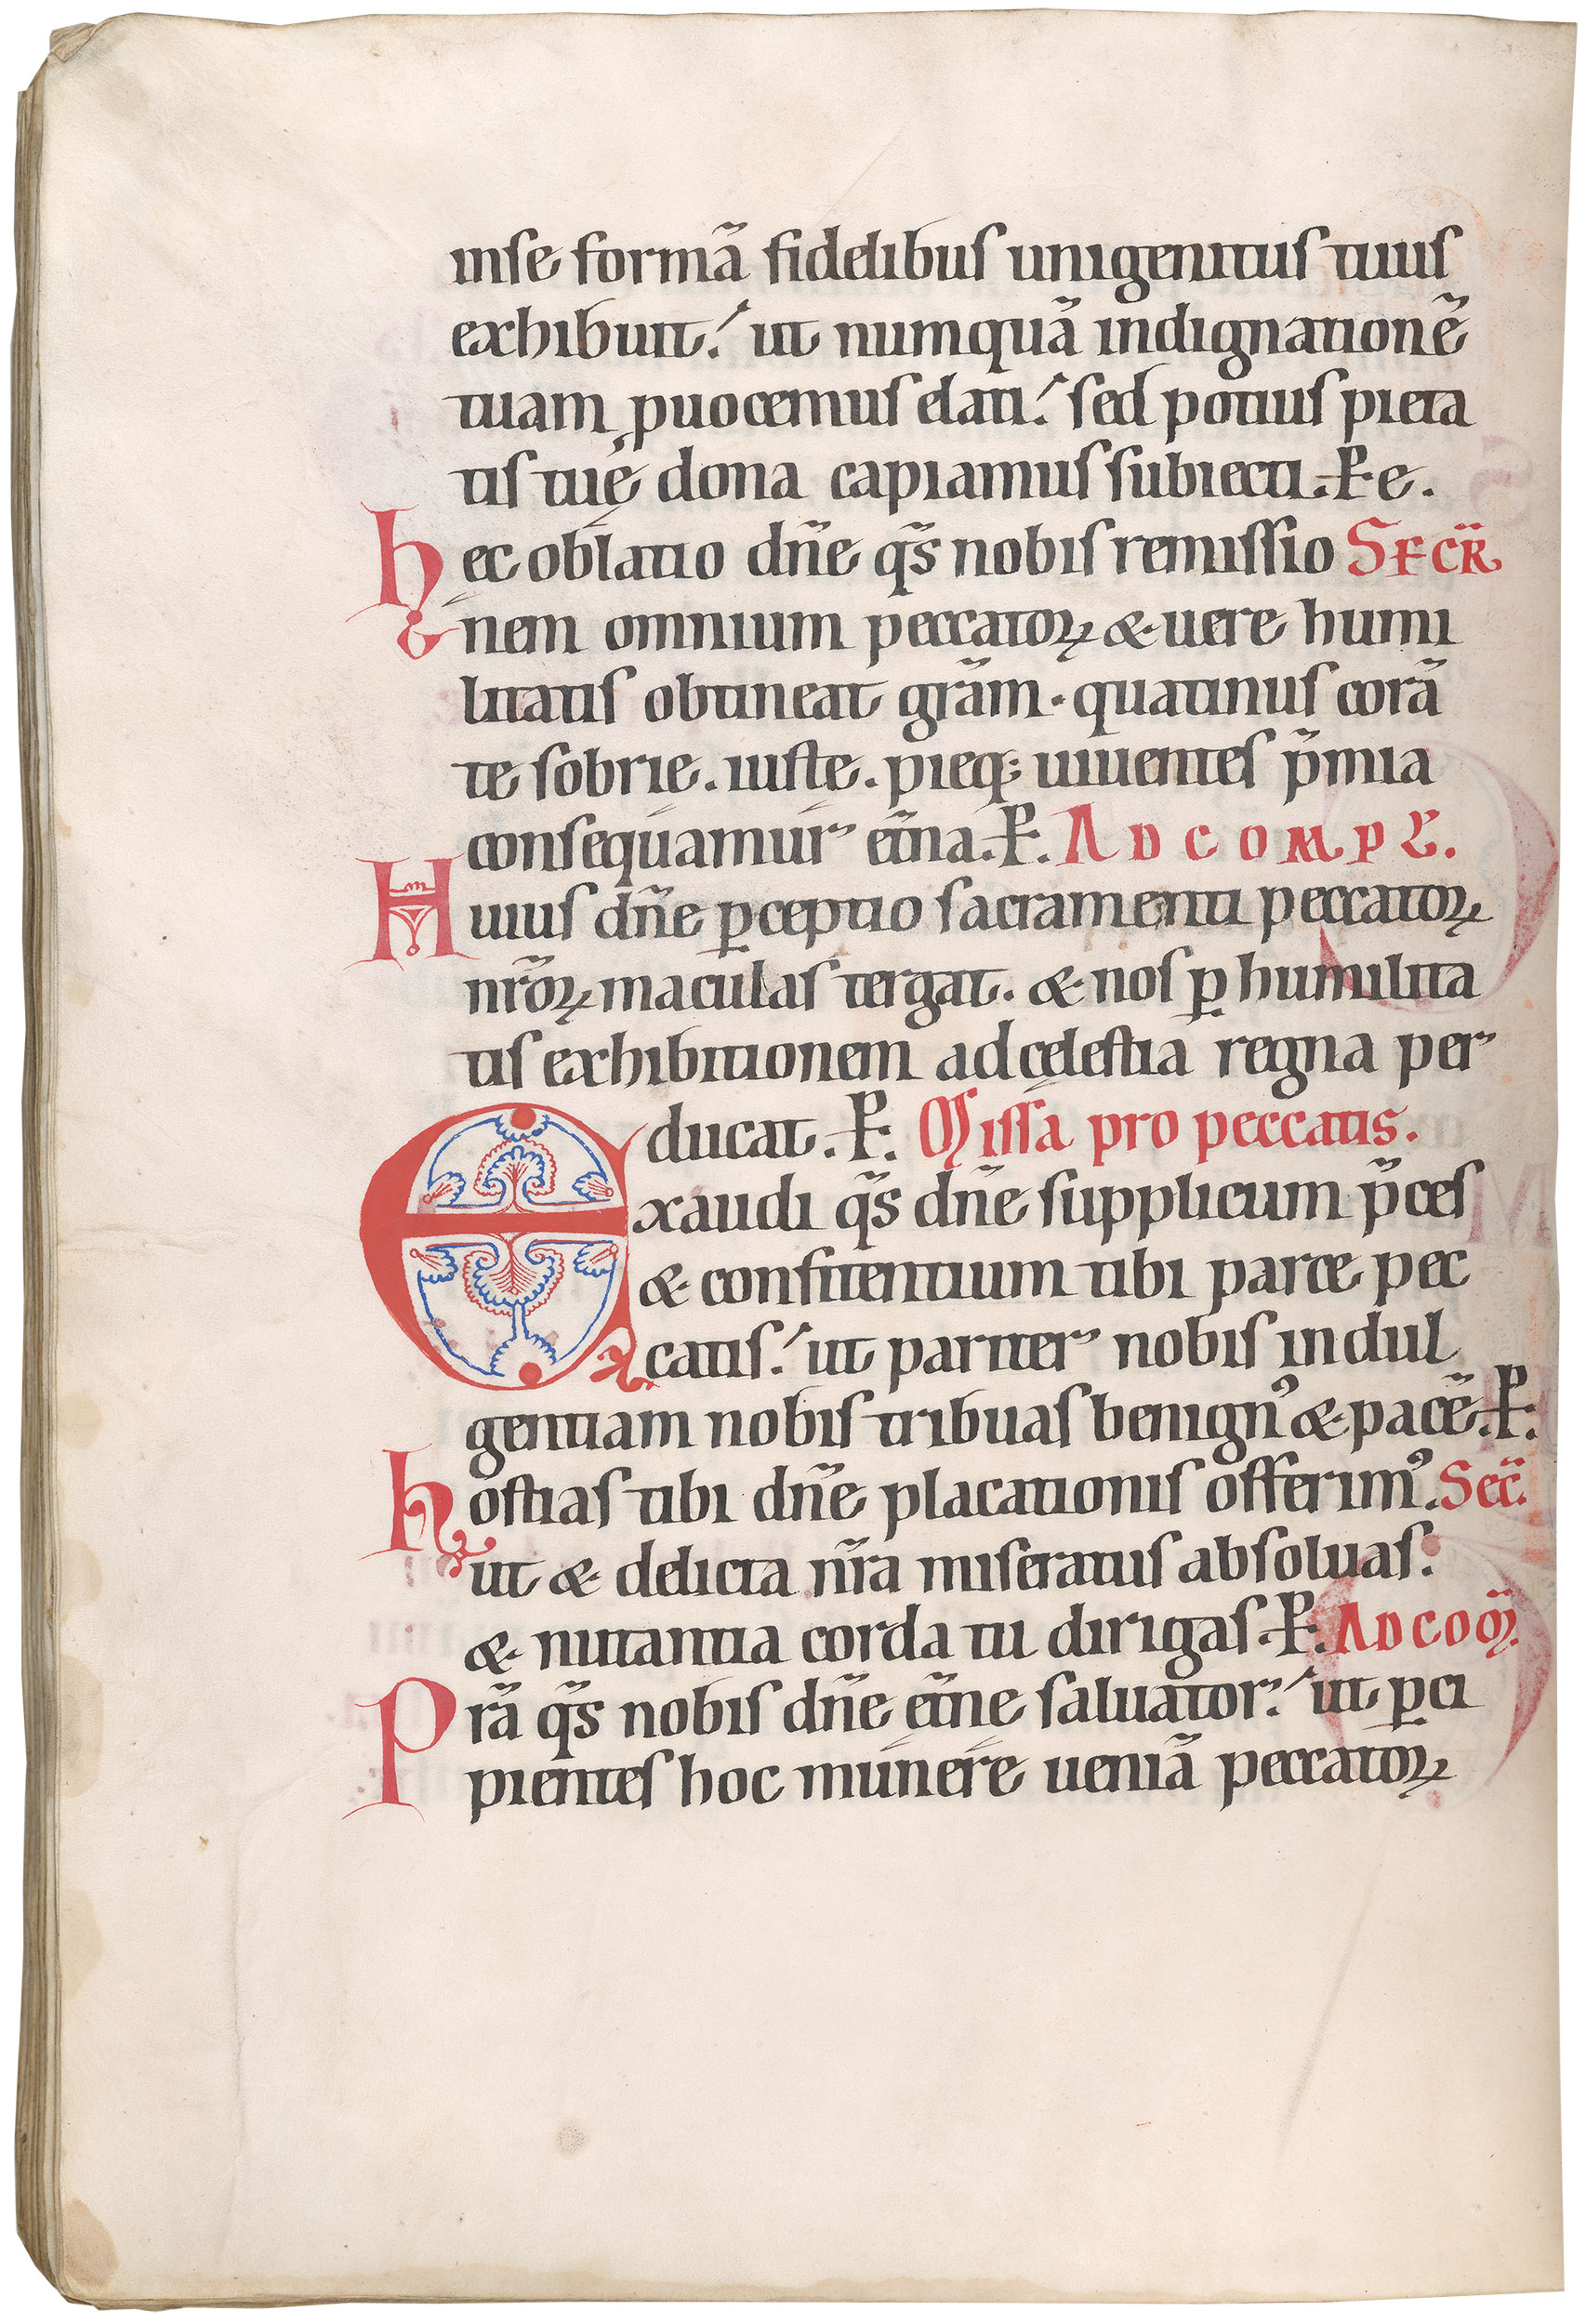 inse formā fidelibus unigenitus tuus
exhibuit. ut numquā indignationē
tuam ꝓuocemus elati. sed potius pieta
tis tuę dona capiamus subiecti. P. e.
hec oblatio dn̄e qs̄ nobis remissio SECR̄
nem omnium peccatoꝝ & uere humi
litatis obtineat grām. quatinus corā
te sobrie. iuste. pieq; uiuentes p̄mia
consequamur et̄na. P. AD COMPL̄.
Huius dn̄e ꝑceptio sacramenti peccatoꝝ
nr̄oꝝ maculas tergat. & nos ꝑ humilita
tis exhibitionem ad cęlestia regna per
ducat. P. Missa pro peccatis.
Exaudi qs̄ dn̄e supplicum p̄ces
& confitentium tibi parce pec
catis. ut pariter nobis indul
gentiam nobis tribuas benignꝰ & pacē. P.
hostias tibi dn̄e placationis offerimꝰ. Sec̄.
ut & delicta nr̄a miseratus absoluas.
& nutantia corda tu dirigas. P. AD COM̄.
Pr̄a qs̄ nobis dn̄e et̄ne saluator. ut ꝑci
pientes hoc munere ueniā peccatoꝝ